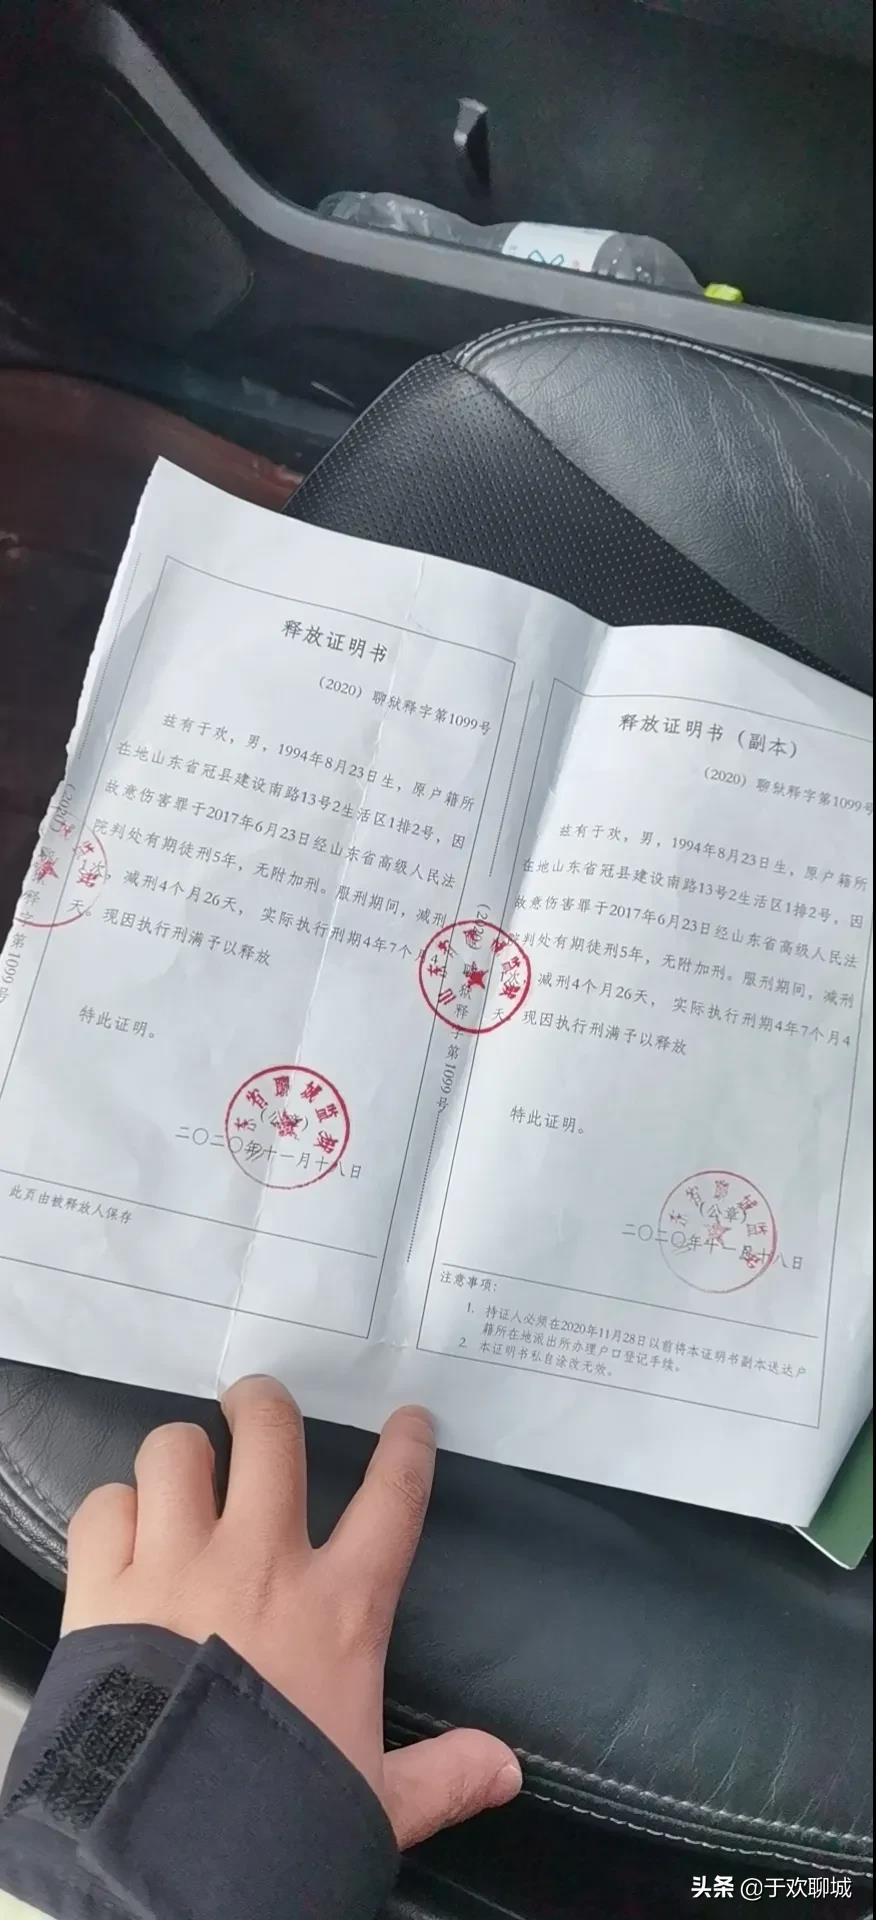 释放证明书
（2020）聊狱释字第1099号
兹有于欢，男，1994年8月23日生，原户籍所
在地山东省冠县建设南路13号2生活区1排2号，因
故意伤害罪于2017年6月23日经山东省高级人民法
院判处有期徒刑5年，无附加刑。服刑期间，减刑
1次，减刑4个月26天，实际执行刑期4年7个月4
天。现因执行刑满予以释放
特此证明。
（公章）
二〇二〇年十一月十八日
此页由被释放人保存
狱释字第1099号
释放证明书（副本）
（2020）聊狱释字第1099号
兹有于欢，男，1994年8月23日生，原户籍所
在地山东省冠县建设南路13号2生活区1排2号，因
故意伤害罪于2017年6月23日经山东省高级人民法
院判处有期徒刑5年，无附加刑。服刑期间，减刑
1次，减刑4个月26天，实际执行刑期4年7个月4
天。现因执行刑满予以释放
特此证明。
（公章）
二〇二〇年十一月十八日
注意事项：
1. 持证人必须在2020年11月28日以前将本证明书副本送达户
籍所在地派出所办理户口登记手续。
2. 本证明书私自涂改无效。
头条 @于欢聊城